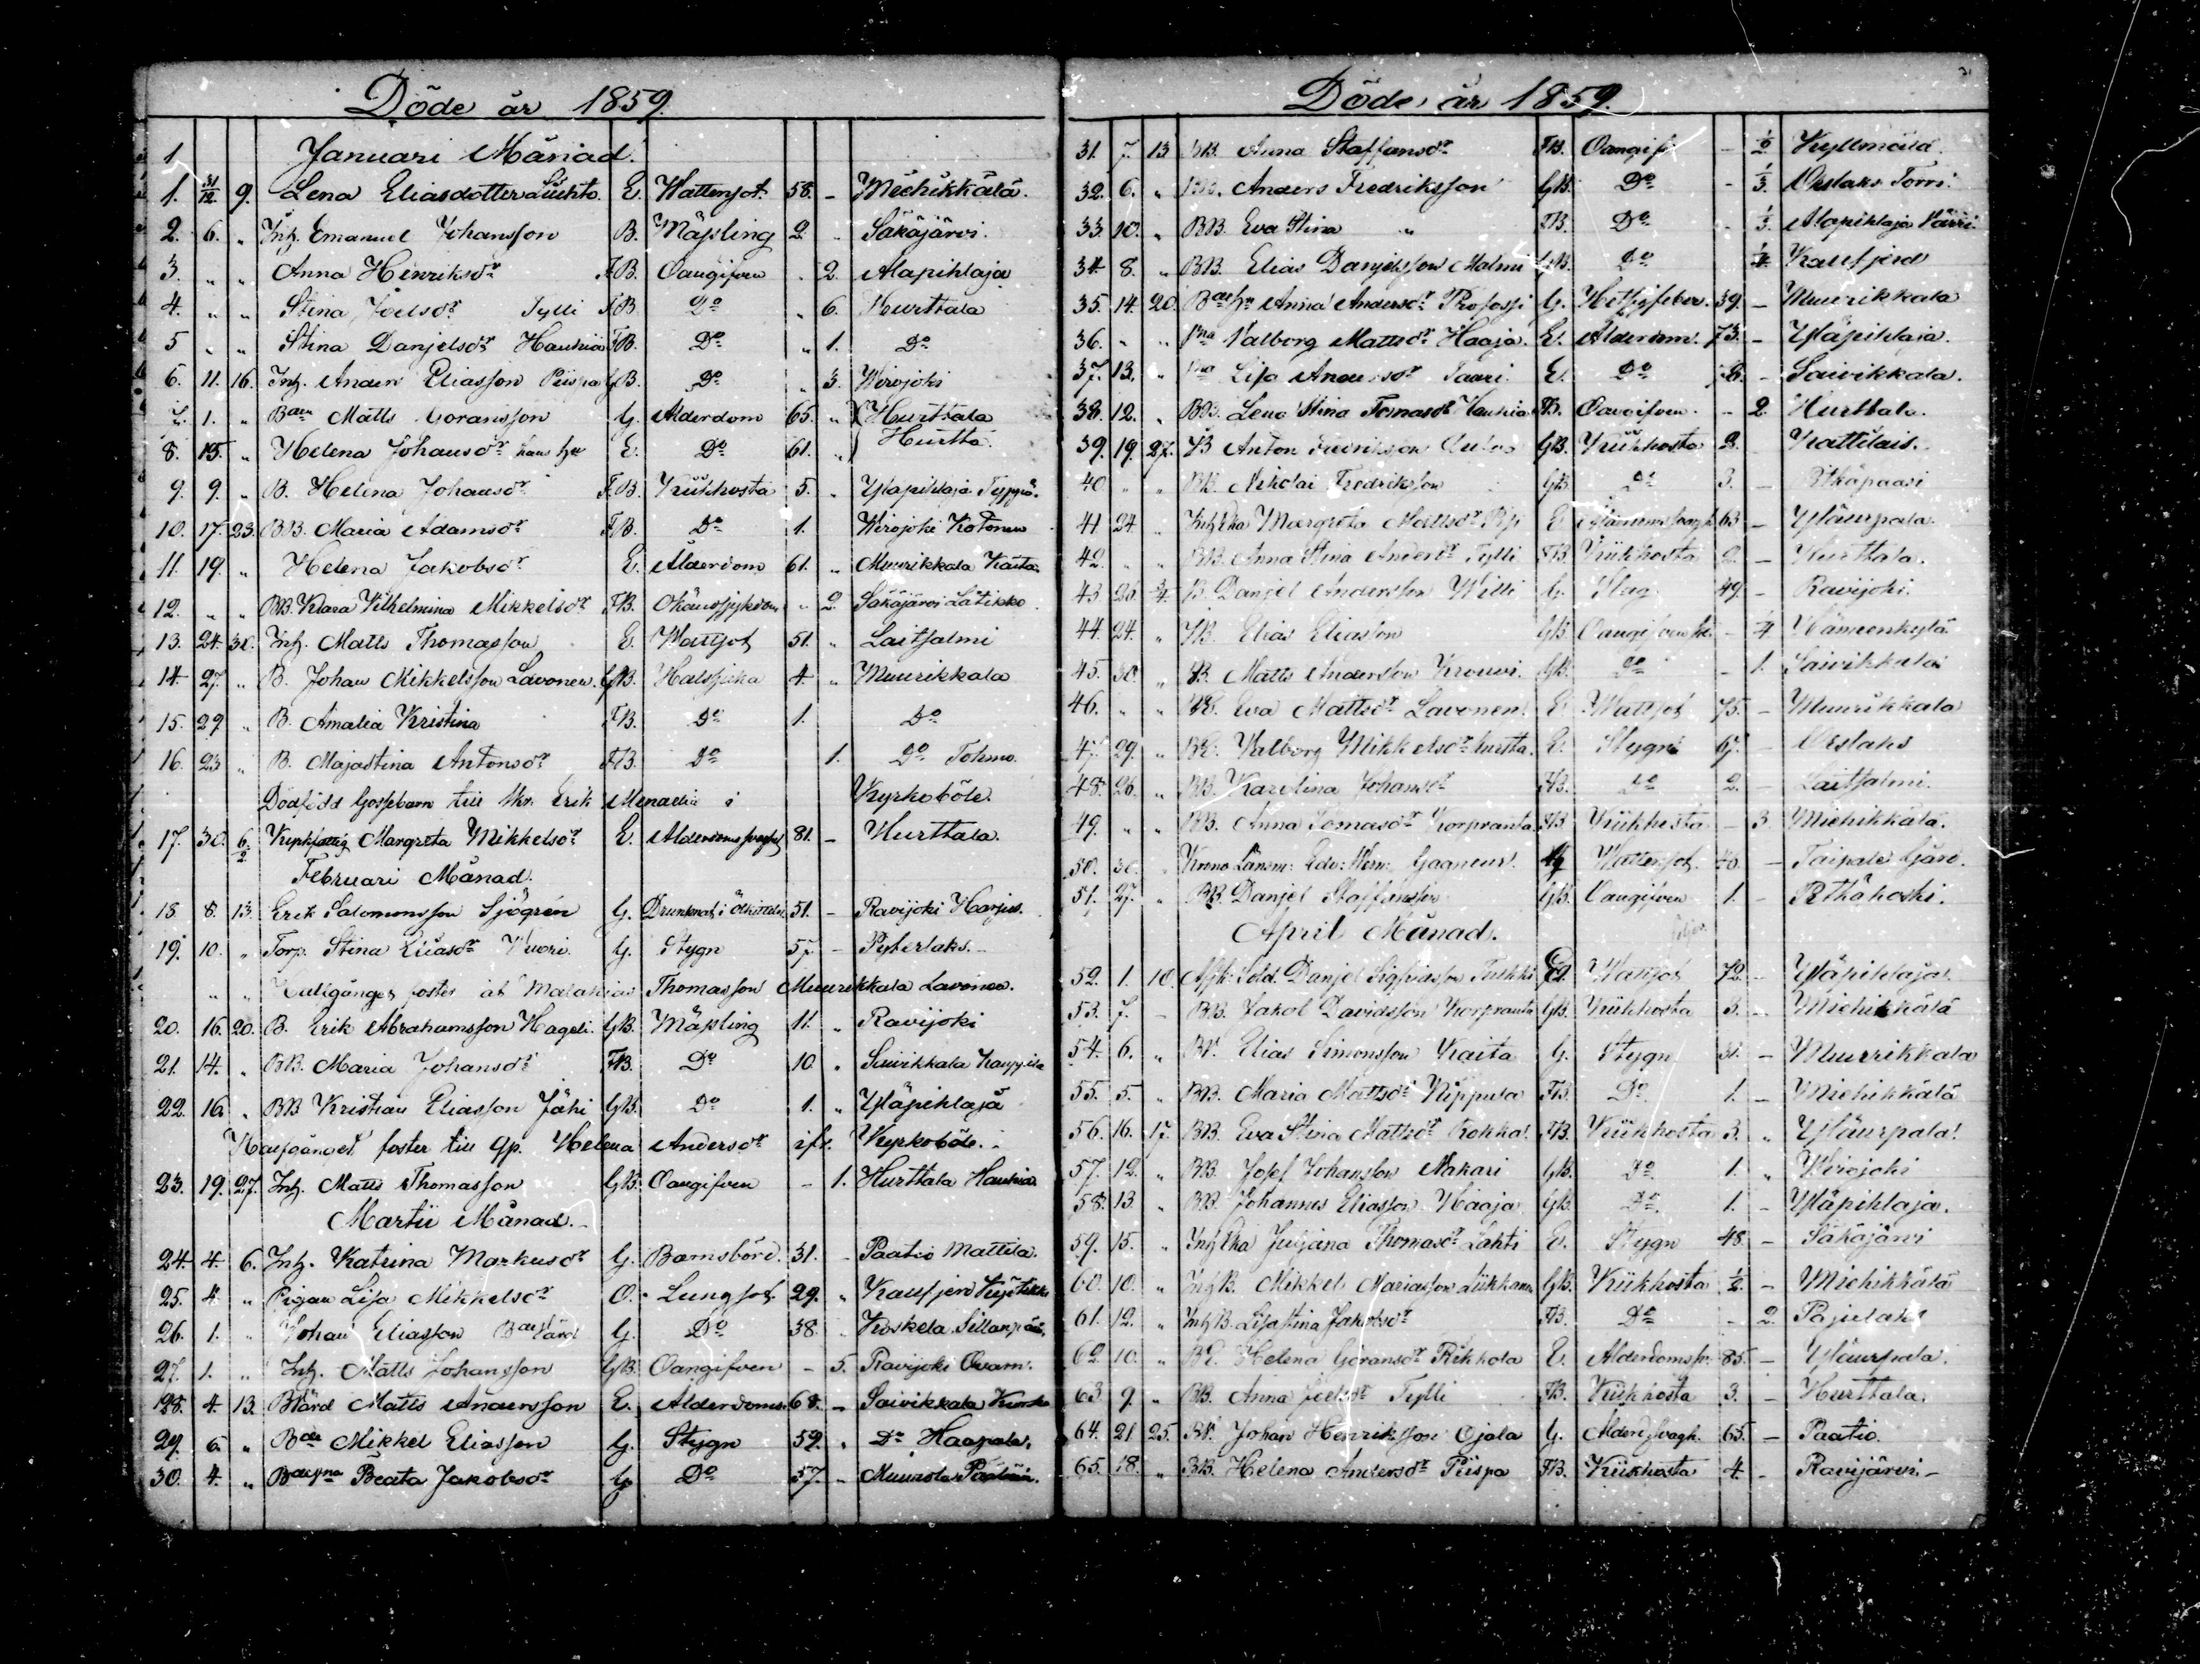 Döde år 1859.
1 Januari Månad.
1. 31/12 9. Lena Eliasdotter E. Wattensot 58. - Miehikkälä.
2. 6. " Inh. Emanuel Johansson B. Mäßling 2. Säkäjärvi.
3. " " Anna Henriksdr FB. Oangifven . 2. Alapihlaja
4. " " Stina Joelsdr Tylli FB Do " 6. Hurttala
5 " " Stina Danjelsdr Hauhia FB. Do " 1. Do
6. 11. 16. Inh. Anders Eliasson Piispa GB. Do " 3. Wirojoki
7. 1. " Matts Goransson G. Alderdom 65. " Hurttala
8. 15. " Helena Johansdr hans E. Do 61. " Hurtta.
9. 9. " B. Helena Johansdr F.B. Kikhosta 5. " Yläpihlaja
10. 17. 23. BB. Maria Adamsdr FB. Do 1. Wirojoki Kotonen
11. 19. " Helena Jakobsdr E. Alderdom 61. " Muurikkala Kaita
12. " " BB. Klara Wilhelmina Mikkelsdr FB. " 2. Säkäjärvi
13. 24. 30. Inh. Matts Thomasson E. Wattsot 51. " Laitsalmi
14. 27. " B. Johan Mikkelsson Lavonen. GB. Halssjuka 4. " Muurikkala
15. 29 " B. Amalia Kristina FB. Do 1. Do
16. 23 " B. Majastina Antonsdr FB. Do 1. Do Tohmo.
Dödfödd Gossebarn till Erik i Kyrkoböle.
17. 30. 6/2 Margreta Mikkelsdr E. 81. - Hurttala.
Februari Månad.
18. 8. 13. Erik Salomonsson Sjögren G. Drunknad i 51. - Ravijoki Harju.
19. 10. " Torp. Stina Eliasdr Wuori. G. Stygn 57. - Pyterlaks.-
" " foster af Malakias Thomasson Muurikkala Lavonen.
20. 16. 20. B. Erik Abrahamsson GB. Mäßling 11. " Ravijoki
21. 14. " BB. Maria Johansdr FB. Do 10. "
22. 16. " BB Kristian Eliasson Jähi GB. Do 1. " Yläpihlaja
foster till Helena Andersdr ifr. Kyrkoböle.
23. 19. 27. Inh. Matts Thomasson GB. Oangifven - 1. Hurttala Hauhia
Martii Månad.-
24. 4. 6. Inh. Katrina Markusdr G. Barnsbörd. 31. - Paatio Mattila.
25. 4 " Pigan Lisa Mikkelsdr O. Lungsot. 29. "
26. 1. " Johan Eliasson G. Do 38. Koskela Sillanpää.
27. 1. " Inh. Matts Johansson GB. Oangifven - 5. Ravijoki
28. 4. 13. Matts Andersson E. Alderdoms 68. - Saivikkala
29. 6. " Mikkel Eliasson G. Stygn 59. " Do Haapala.
30. 4. " Beata Jakobsdr G. Do 57. "
Döde år 1859.
31. 7. 13 BB. Anna Staffansdr FB. Oangif - 1/2 Kyllmälä.
32. 6. " Anders Fredriksson GB. Do - 1/3. Orslaks Torri.
33. 10. " BB. Eva Stina " FB. Do - 1/3. Alapihlaja
34. 8. " BB. Elias Danjelsson Malmi GB. Do Kausfjerd
35. 14. 20. Anna Andersdr G. 39. - Muurikkala
36. " " Valborg Mattsdr Haaja. E. Alderdom. 73. - Yläpihlaja.
37. 13. " Lisa Andersdr Taari. E. Do - Saivikkala.
38. 12. " BB. Lena Stina Tomasdr Hauhia FB. Oangifven. - 2. Hurttala.
39. 19. 27. Anton Fredriksson GB. Kikhosta 2. Kattilais.
40. " " BB. Nikolai Fredriksson GB. Do 3. - Pitkäpaasi
41 24 Margreta Mattsdr E 63 - Yläurpala.
42. " " BB. Anna Stina Andersdr Tylli FB. Kikhosta 2 - Hurttala.
43. B. Danjel Andersson Willi G. Slag 49. - Ravijoki.
44. 24. " Elias Eliasson GB. Oangifven - Hämeenkylä
45. 30. " Matts Andersson Krouvi. GB. Do - 1. Saivikkala
46. " " Eva Mattsdr Lavonen. E. Wattsot 75. - Muurikkala
47. 29. " Valborg Mikkelsdr Hurtta. E. Stygn 67. - Orslaks
48. 26. " BB. Karolina Johansdr FB. Do 2. - Laitsalmi.
49. " " BB. Anna Tomasdr Korpranta FB Kikhosta - 3. Miehikkälä.
50. 30. Krono Länsm: G Wattensot - Taipale Gård.
51. 27. " BB. Danjel Staffansson GB. Oangifven 1. -
April Månad.
52. 1. 10. Danjel Wattsot 72. - Yläpihlaja.
53. 7. - BB. Jakob Davidsson Korpranta GB. Kikhosta 3. - Miehikkälä
54. 6. " Elias Simonsson Kaita G. Stygn 31. - Muurikkala
55. 5. " BB. Maria Mattsdr FB. Do 1. - Miehikkälä
56. 16. 17. BB. Eva Stina Mattsdr Kokka. FB. Kikhosta 3. " Yläurpala.
57. 12. " BB. Josef Johansson Nakari GB. Do 1. " Wirojoki
58. 13. " BB. Johannes Eliasson Haaja GB. Do 1. - Yläpihlaja.
59. 15. " Juljana Thomasdr Lahti E. Stygn 48. - Säkäjärvi
60. 10. " Inh B. Mikkel Mariasson GB. Kikhosta 1/2. - Miehikkälä
61. 12. " Inh B. Lisastina Jakobsdr FB. Do - 2. Pajulaks
62 10. " BE. Helena Göransdr E. Alderdoms 85. - Yläurpala.
63 9. " BB. Anna Joelsdr Tylli FB. Kikhosta 3. - Hurttala.
64. 21. 25. Johan Henriksson Ojala G. 65. - Paatio.
65. 18. " BB. Helena Andersdr Piispa FB. Kikhosta 4. - Ravijärvi.-